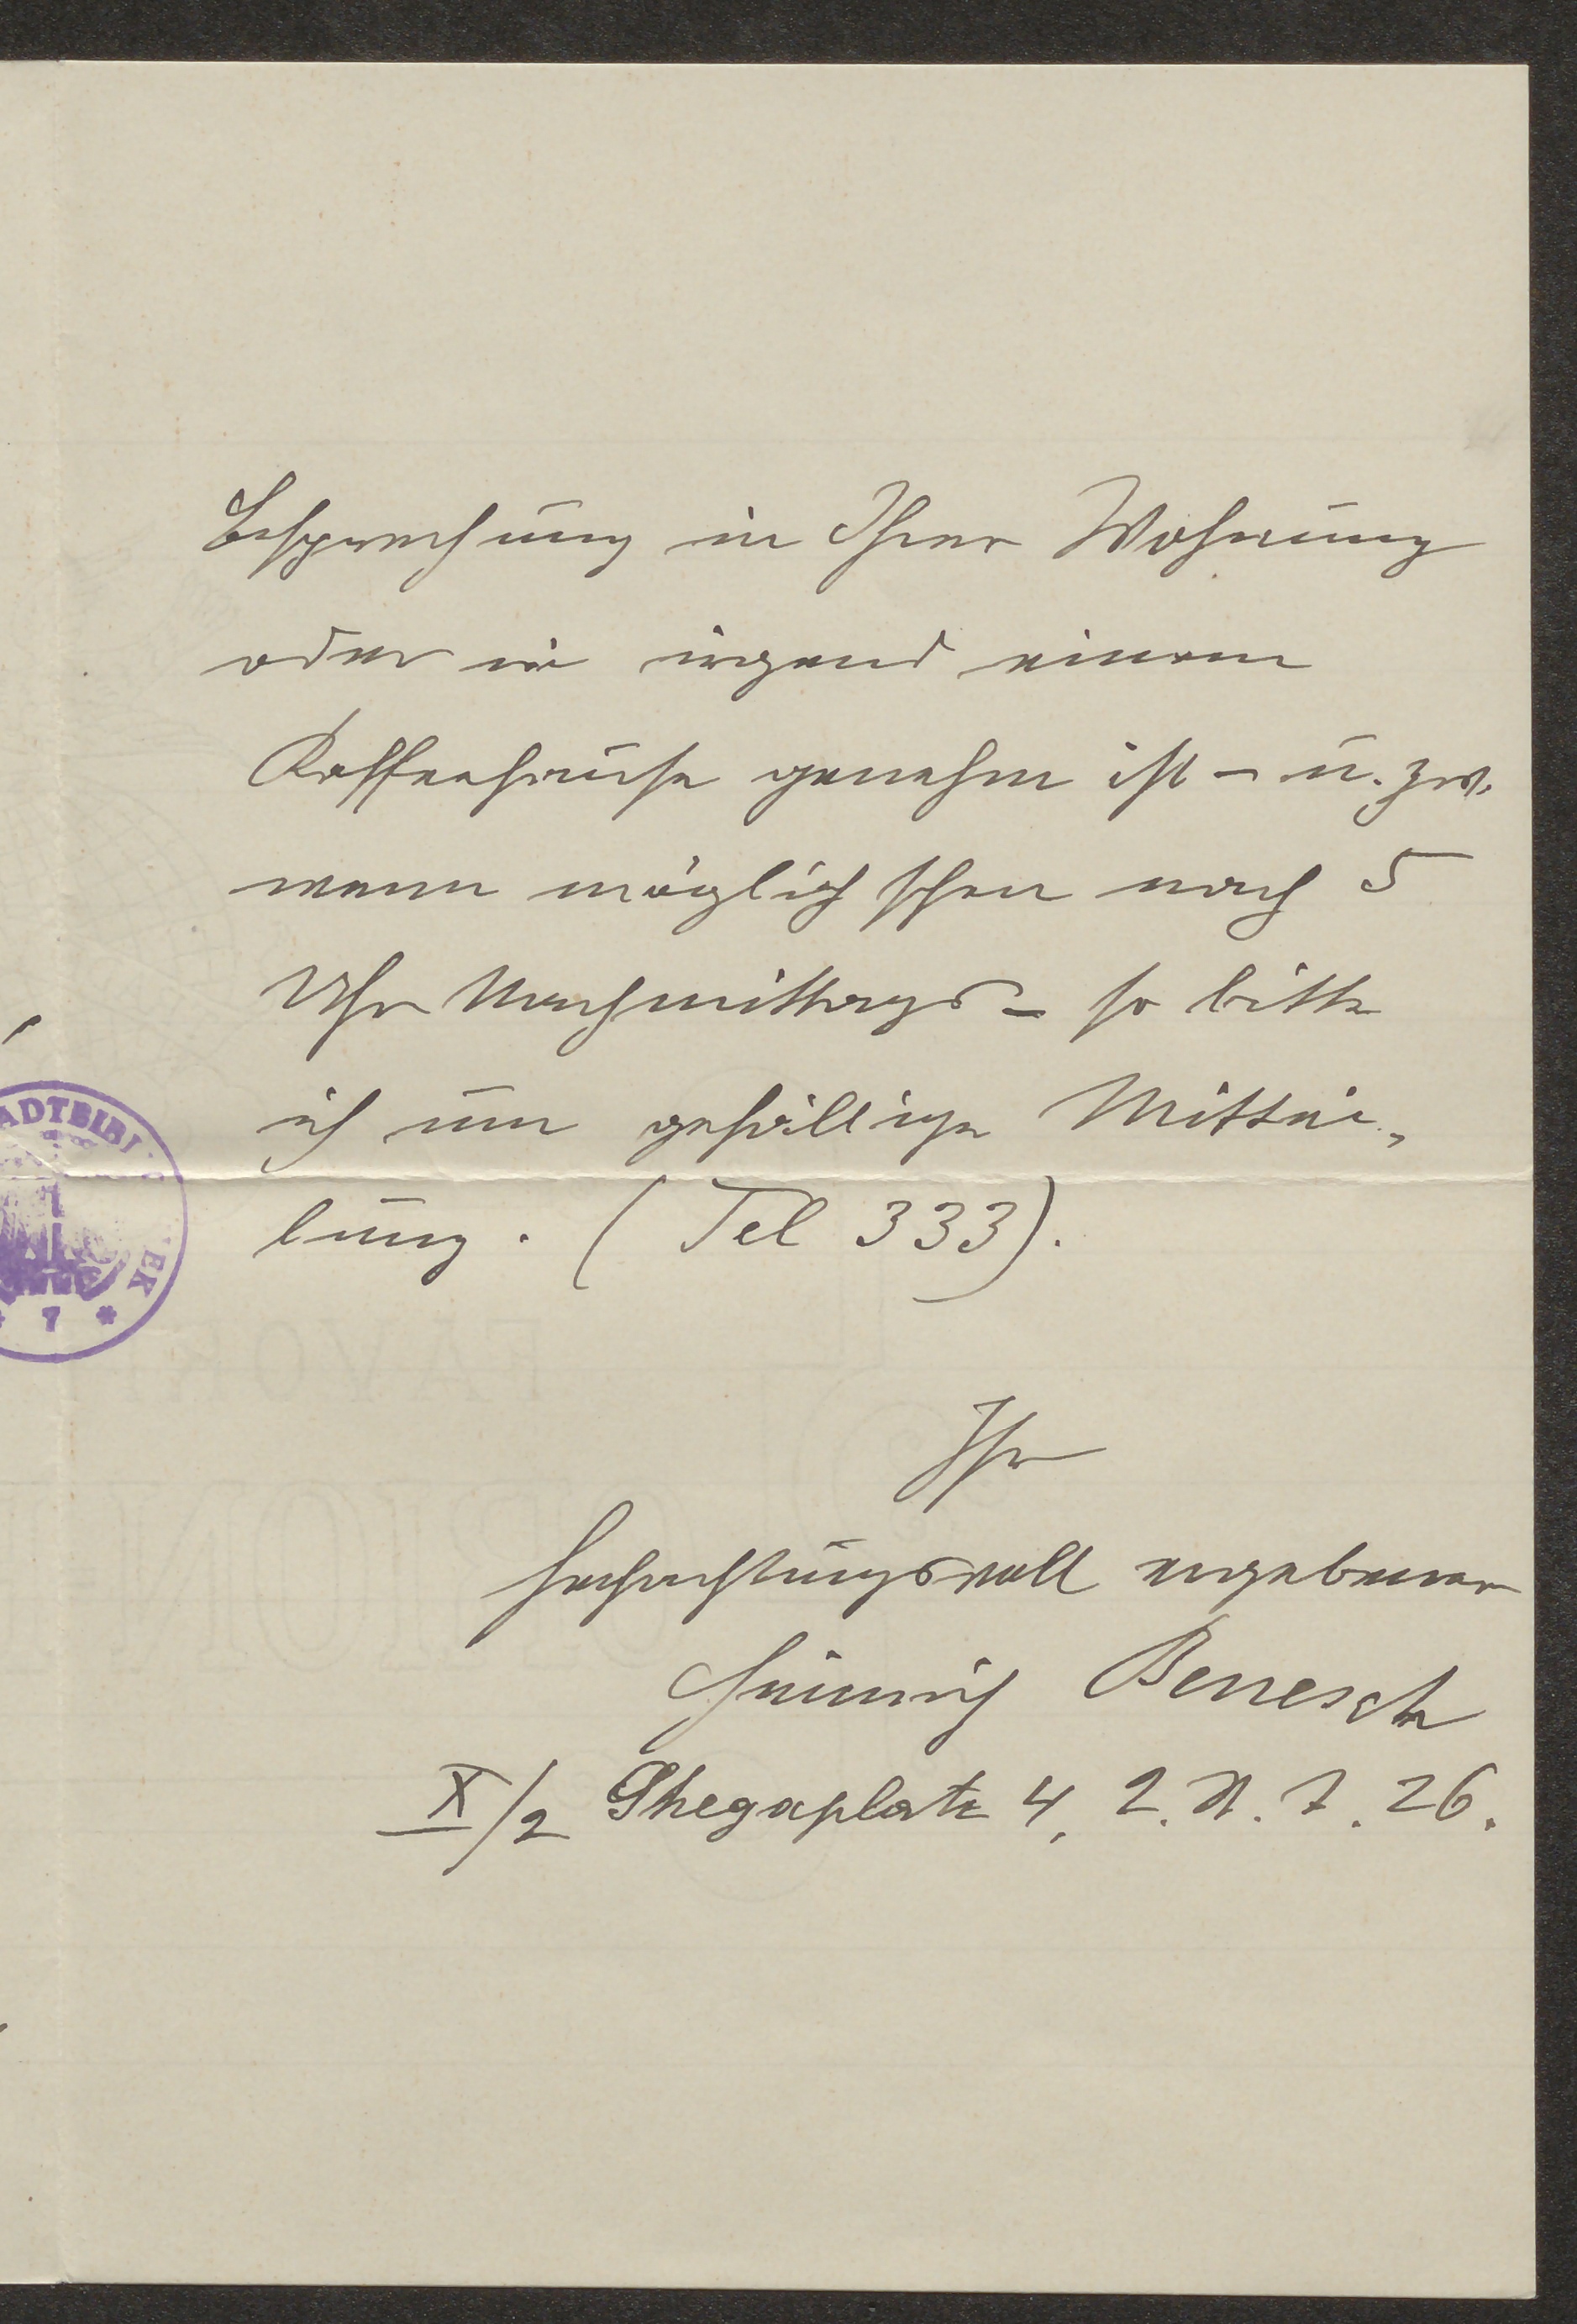 Besprechung in Ihrer Wohnung
oder in irgend einem
Kaffeehause genehm ist – u. zw.
wenn möglich schon nach 5
Uhr Nachmittags – so bitte
ich um gefällige Mittei„
lung. (Tel 333).
ADTBIBI
EK
* 7 *
Ihr
hochachtungsvoll ergebener
Heinrich Benesch
X/2 Ghegaplatz 4, 2. St. T. 26.